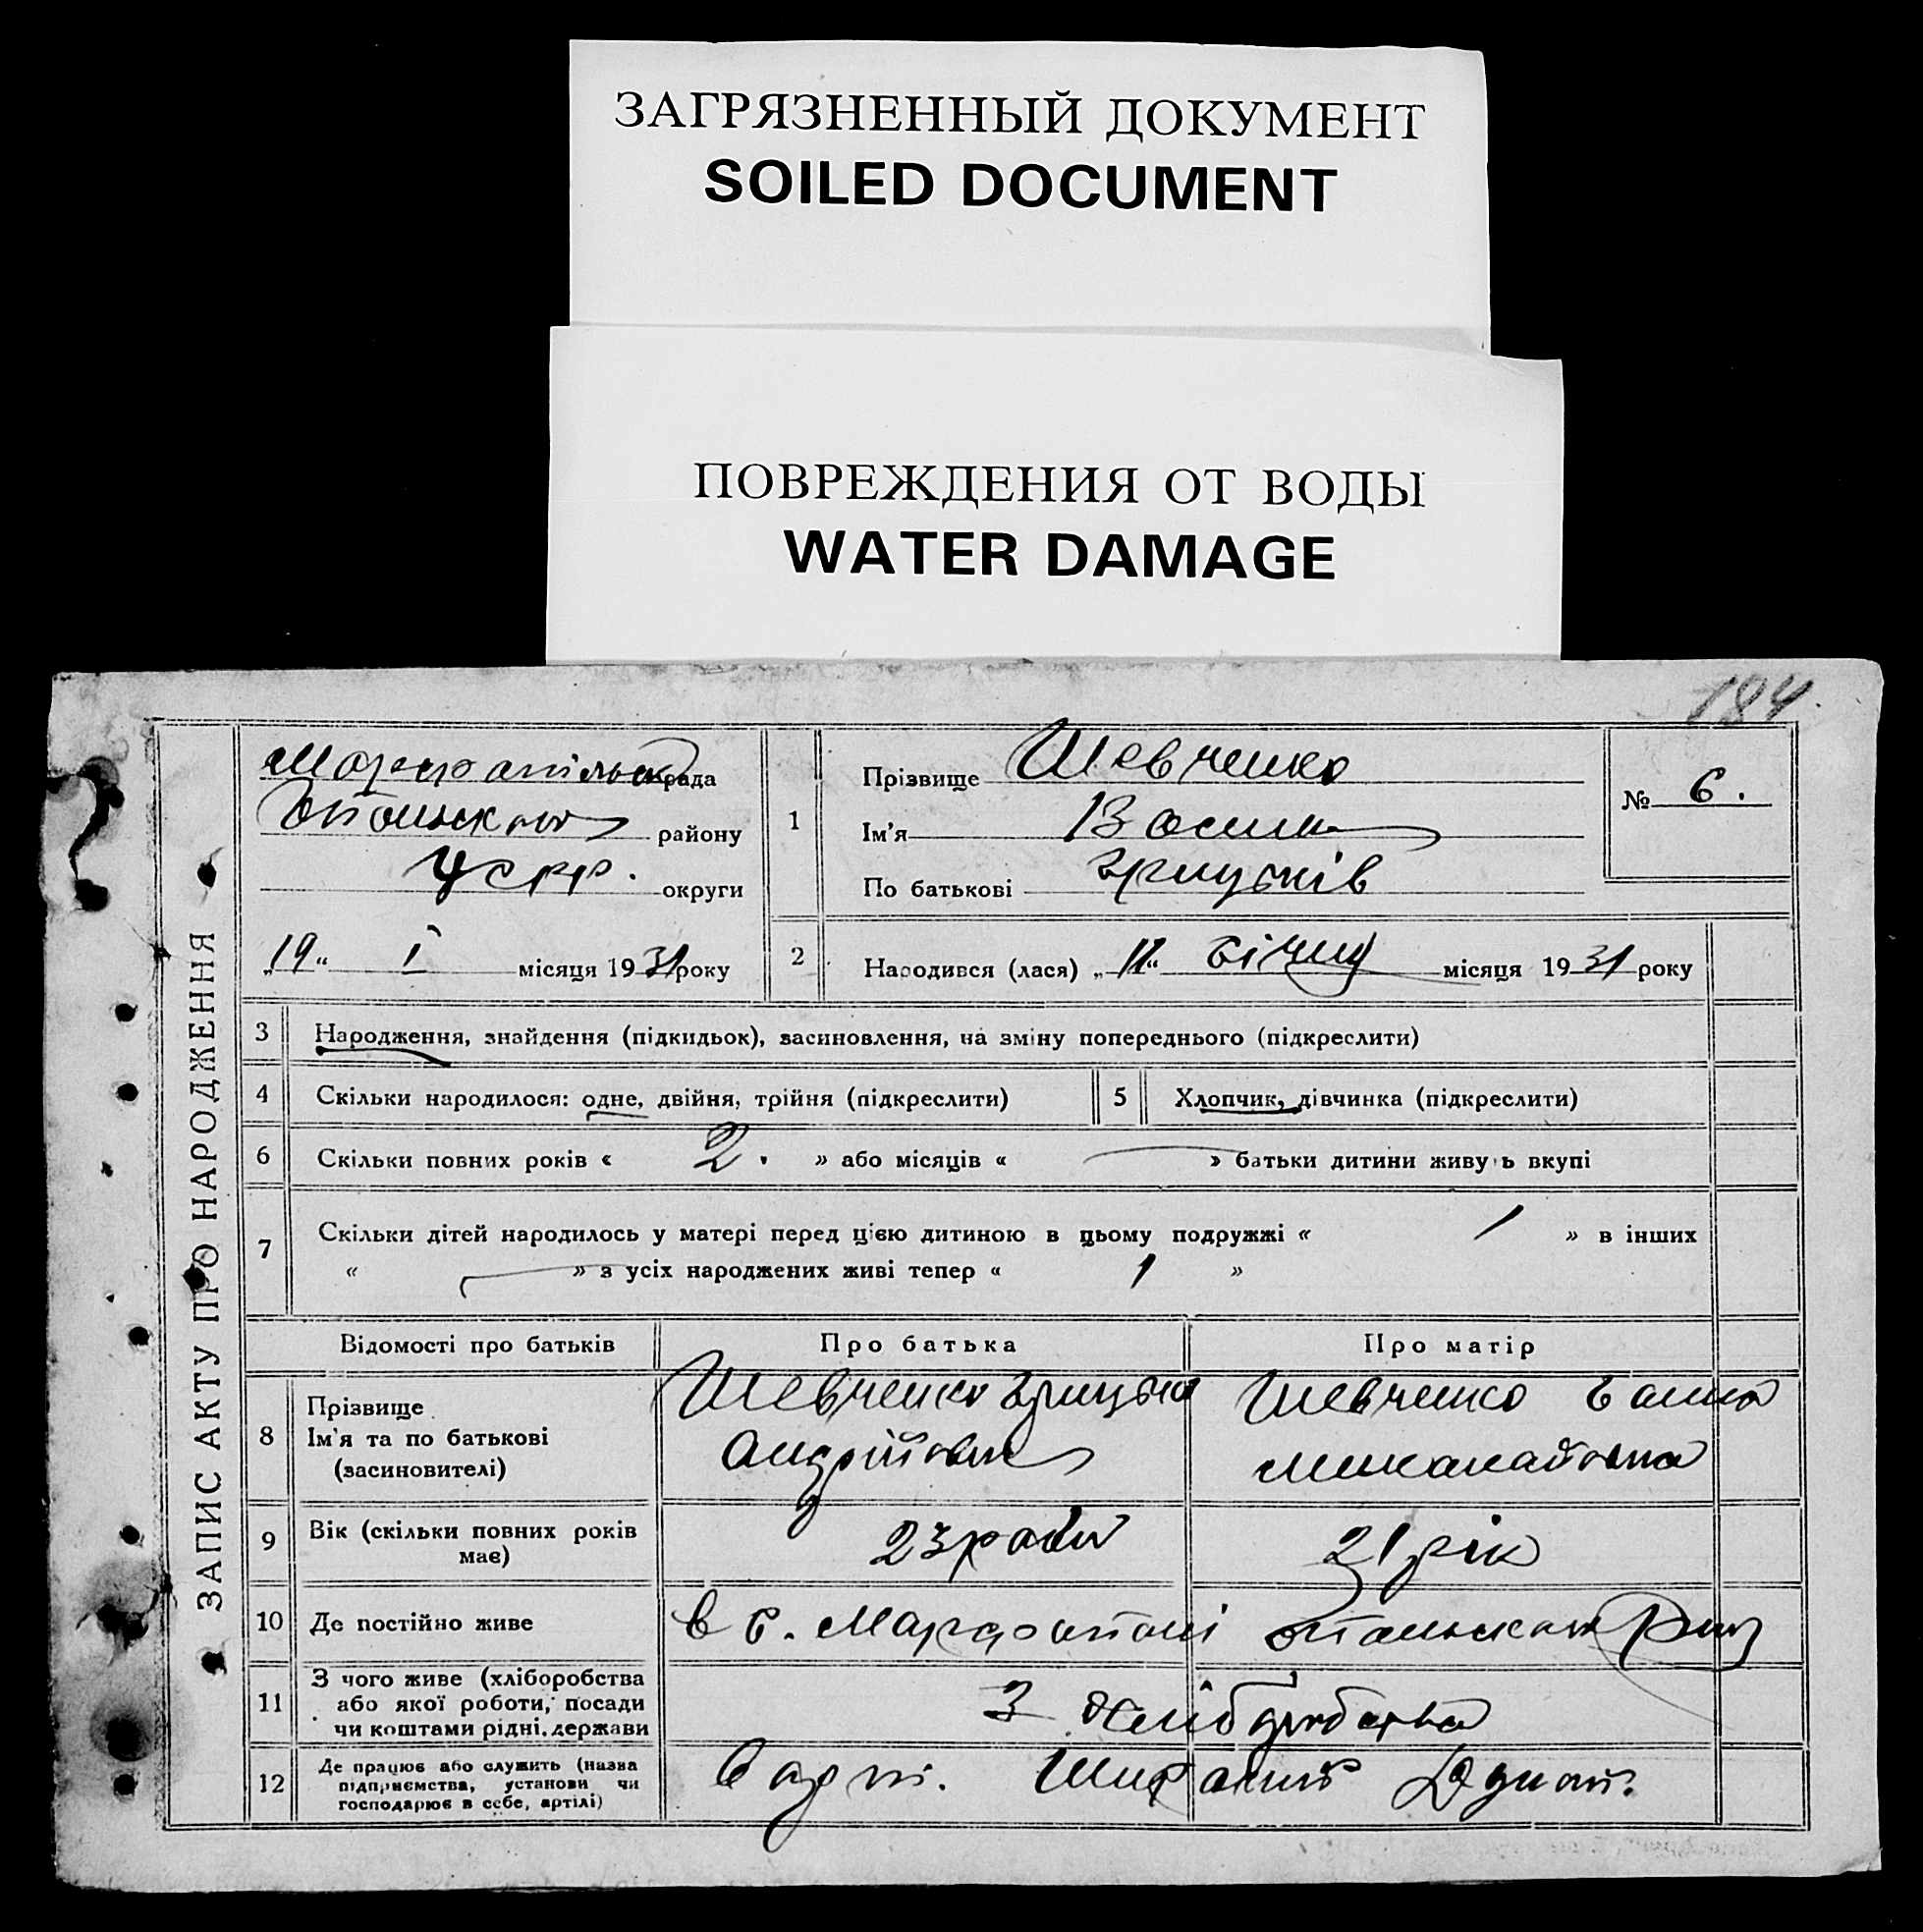 ЗАГРЯЗНЕННЫЙ ДОКУМЕНТ
SOILED DOCUMENT
ПОВРЕЖДЕНИЯ ОТ ВОДЫ
WATER DAMAGE
184
ЗАПИС АКТУ ПРО НАРОДЖЕННЯ
рада
району
УСРР. округи
„19“ I місяця 1931 року
1
Прізвище Шевченко
Ім'я
По батькові Грицьків
№ 6.
2 Народився (лася) „11“ Січня місяця 1931 року
3 Народження, знайдення (підкидьок), засиновлення, на зміну попереднього (підкреслити)
4 Скільки народилося: одне, двійня, трійня (підкреслити) 5 Хлопчик, дівчинка (підкреслити)
6 Скільки повних років « 2. » або місяців « — » батьки дитини живуть вкупі
7 Скільки дітей народилось у матері перед цією дитиною в цьому подружжі « 1 » в інших
« — » з усіх народжених живі тепер « 1 »
Відомості про батьків Про батька Про матір
8 Прізвище Ім'я та по батькові (засиновителі)
Шевченко Грицько Шевченко Ганна
Андрійович
9 Вік (скільки повних років має) 23 роки 21 рік
10 Де постійно живе в с.
11 З чого живе (хліборобства або якої роботи, посади чи коштами рідні, держави
З хліборобства
12 Де працює або служить (назва підприємства, установи чи господарює в себе, артілі)